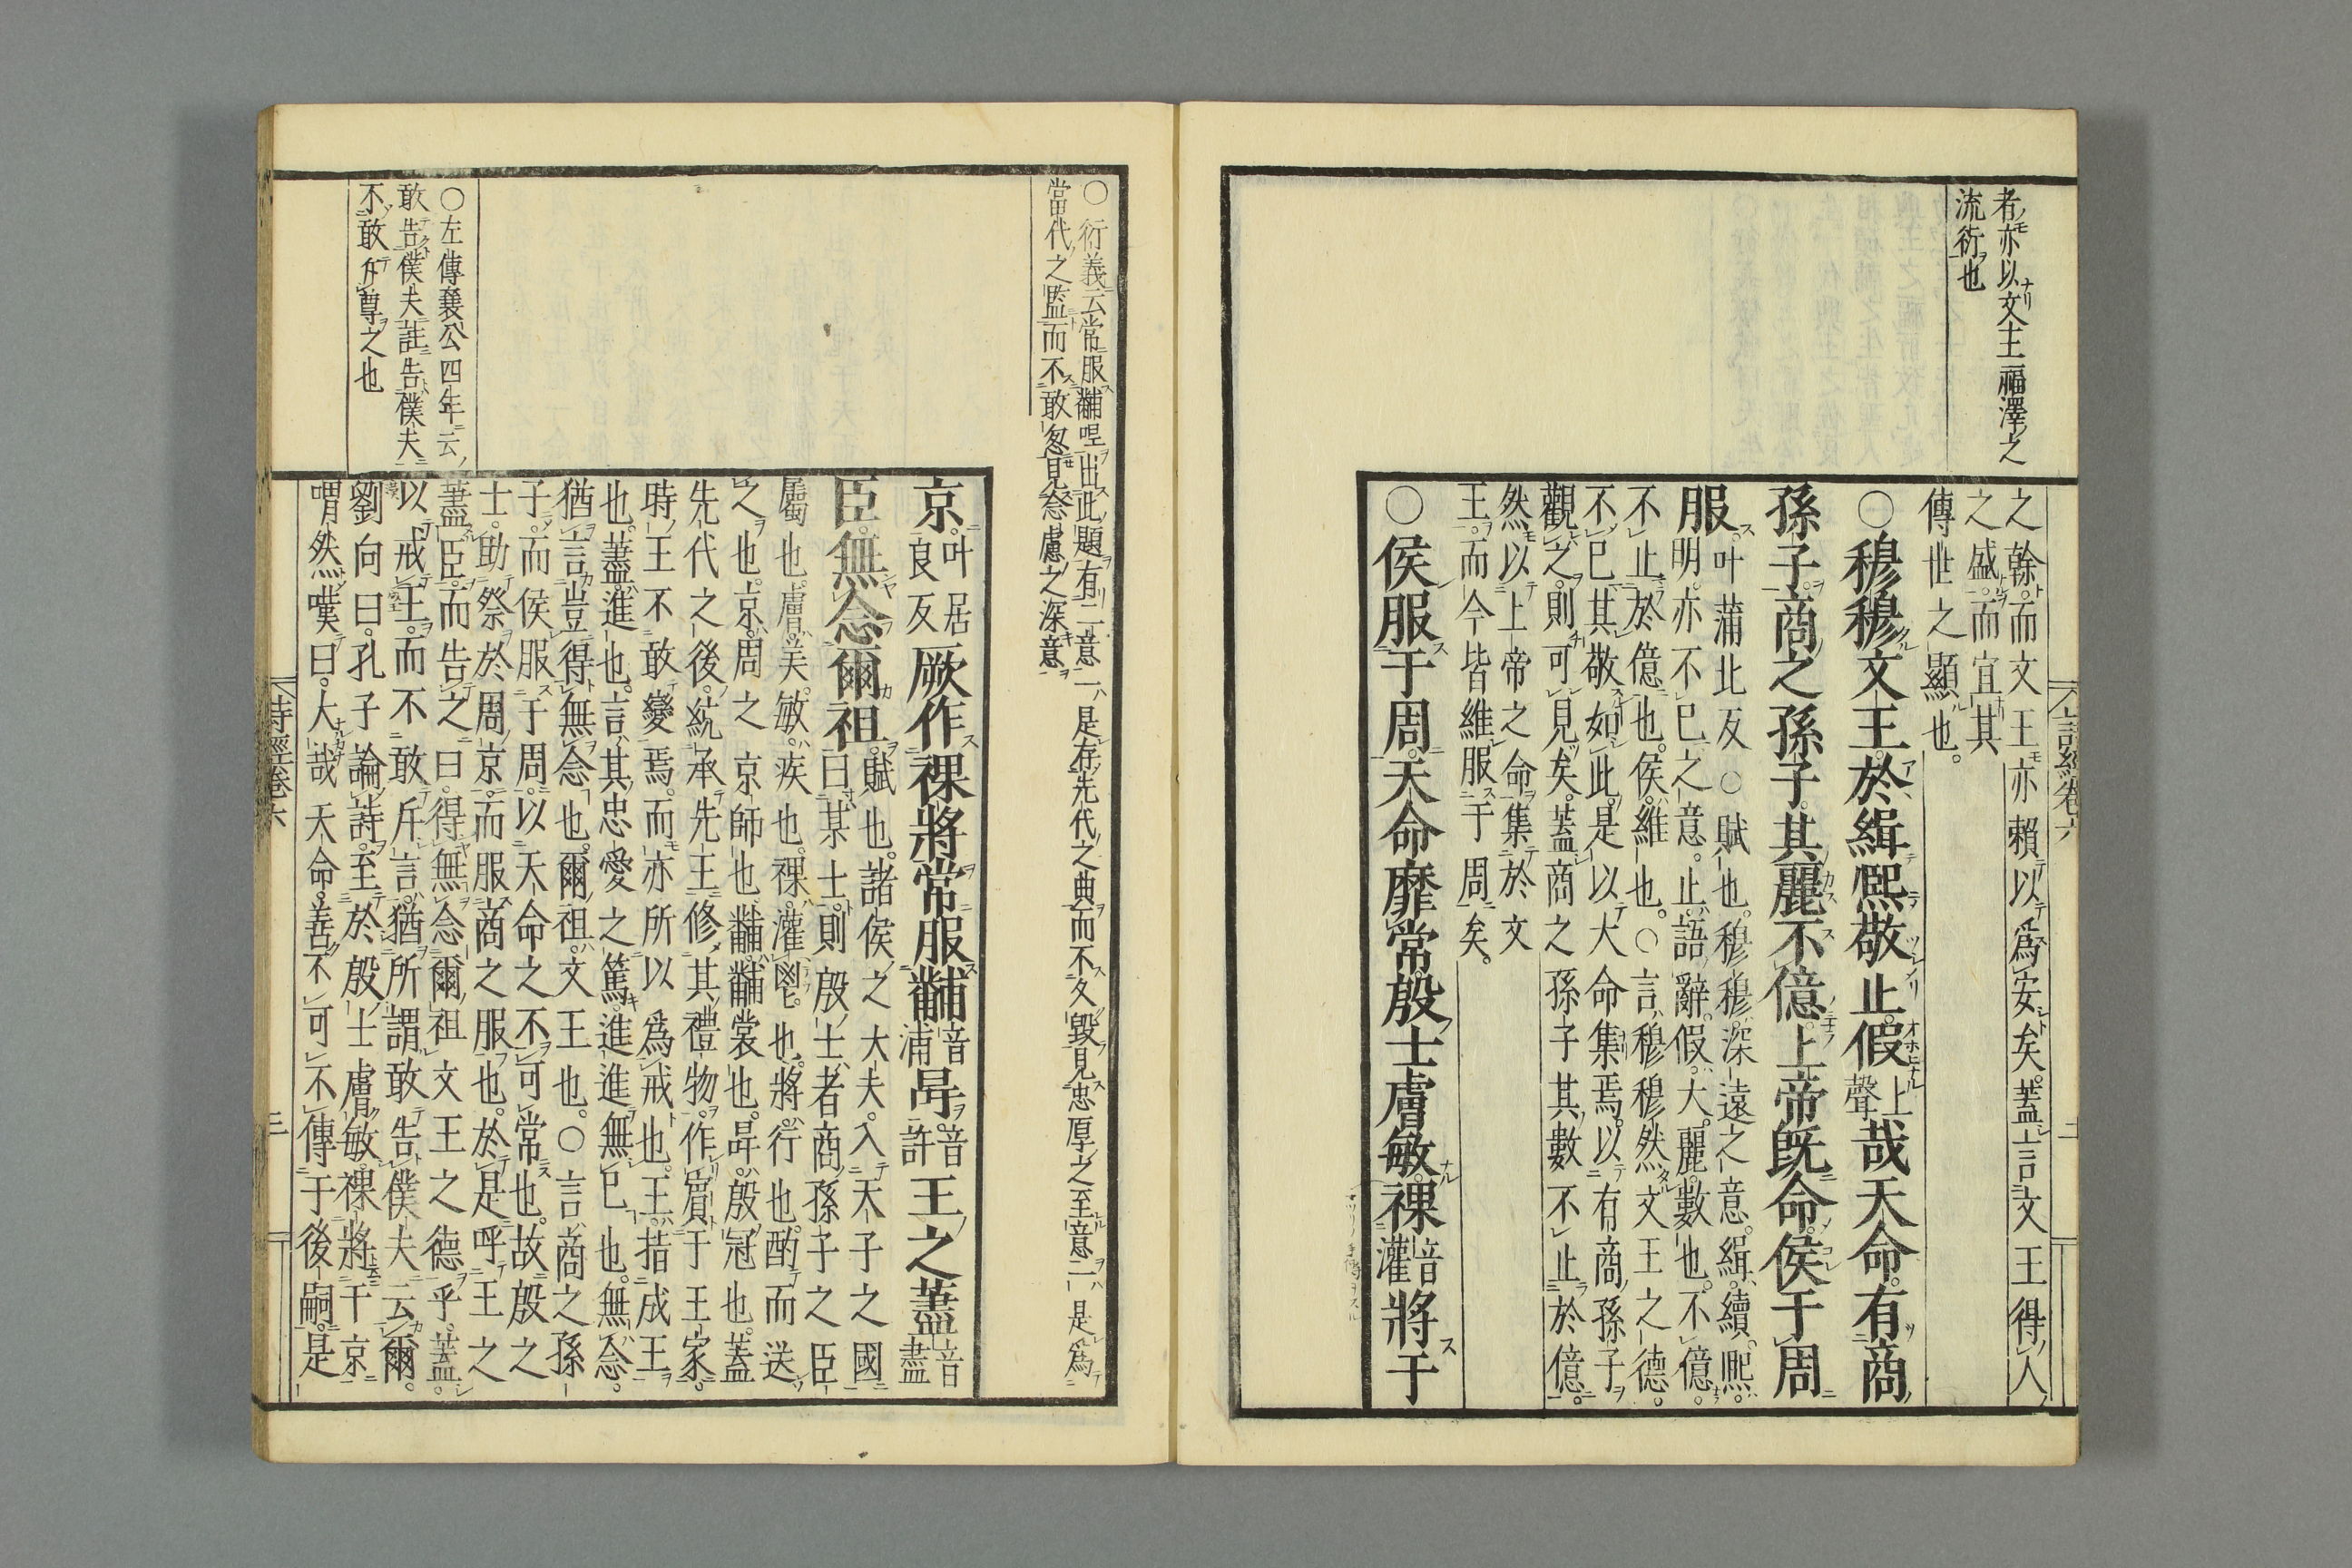 者亦以文王福澤之
流衍也
之幹而文王亦賴以爲安矣。蓋言文王得人
之盛。而宜其
傳世之顯也。
○穆穆文王。於緝熙敬止。假上聲哉天命。有商
孫子。商之孫子。其麗不億。上帝既命。侯于周
服。叶蒲北反○賦也。穆穆。深遠之意。緝。續。熙。
明。亦不已之意。止。語辭。假。大。麗。數也。不億。
不止於億也。侯。維也。○言穆穆然文王之德。
不已其敬如此。是以大命集焉。以有商孫子
觀之。則可見矣。蓋商之孫子其數不止於億。
然以上帝之命集於文
王。而今皆維服于周矣。
○侯服于周。天命靡常。殷士膚敏。祼音灌將于
詩經卷六
二
○衍義云常服黼哻出此題有二意一ハ是存先代之典而不久毀見忠厚之至意二ハ是爲
當代之監而不敢忽見念慮之深意
京。叶居良反厥作祼將。常服黼音浦冔。音許王之藎音盡
臣。無念爾祖。賦也。諸侯之大夫。入天子之國
曰某士。則殷士者商孫子之臣
屬也。膚。美。敏。疾也。祼。灌鬯也。將。行也。酌而送
之也。京。周之京師也。黼。黼裳也。冔。殷冠也。蓋
先代之後。統承先王。修其禮物。作賓于王家。
時王不敢變焉。而亦所以爲戒也。王。指成王
也。藎。進也。言其忠愛之篤。進進無已也。無念。
猶言豈得無念也。爾祖。文王也。○言商之孫
子。而侯服于周。以天命之不可常也。故殷之
士。助祭於周京。而服商之服也。於是呼王之
藎臣。而告之曰。得無念爾祖文王之德乎。蓋
以戒王。而不敢斥言。猶所謂敢告僕夫云爾。
劉向曰。孔子論詩。至於殷士膚敏。祼將于京
喟然嘆曰。大哉天命。善不可不傳于後嗣。是
○左傳襄公四年云
敢告僕夫註告僕夫
不敢斥尊之也
詩經卷六
三